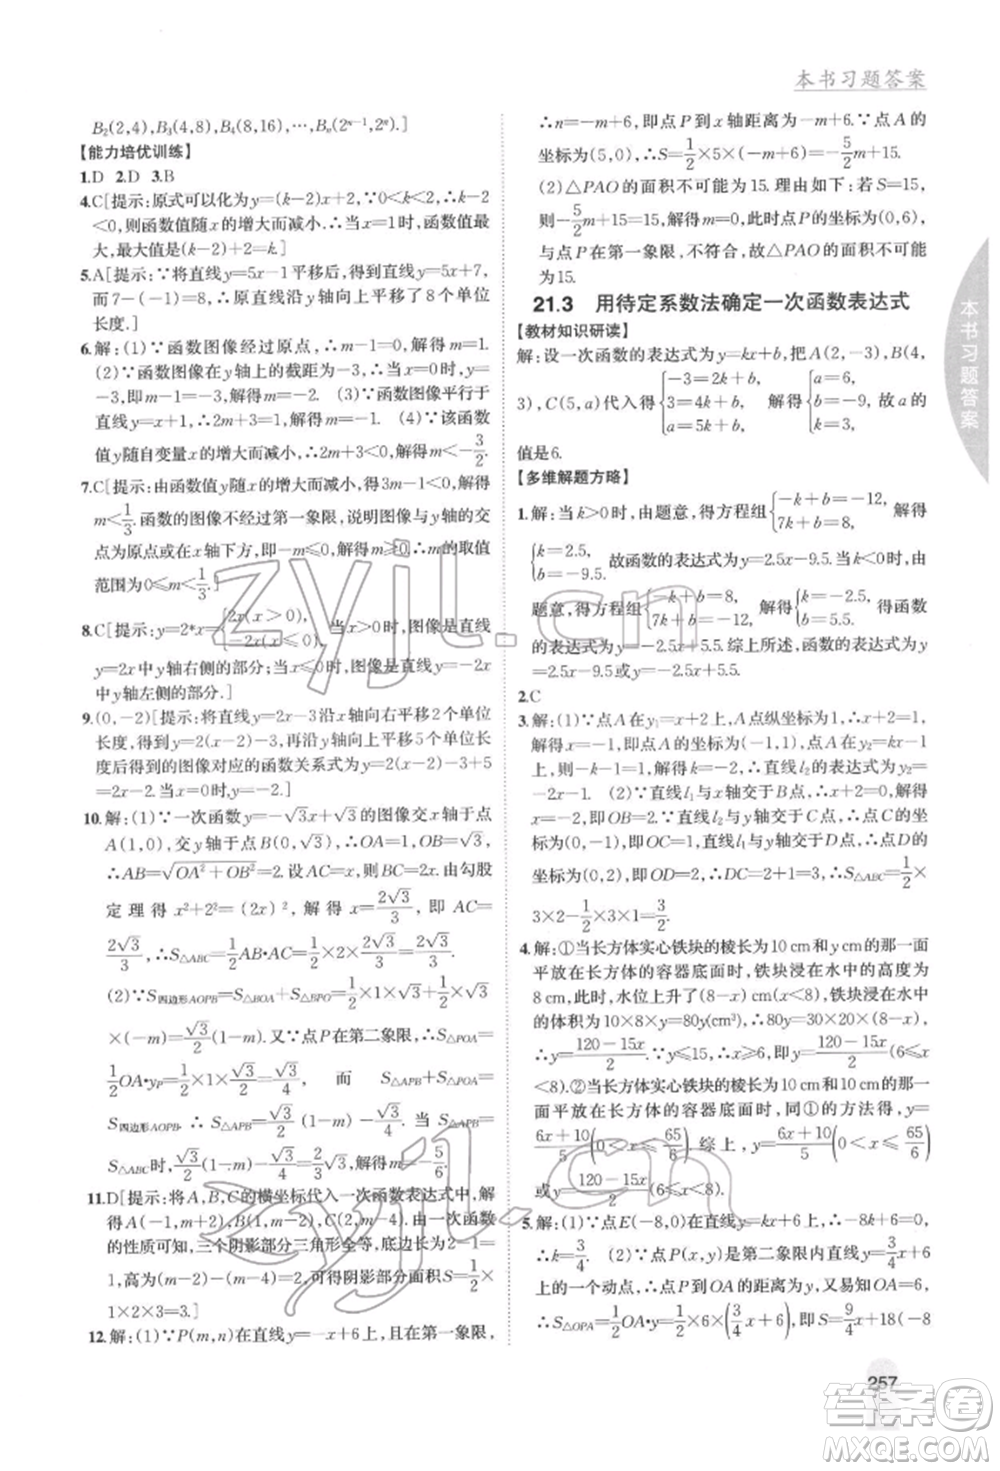 本书习题答案
B₂(2,4),B₃(4,8),B₄(8,16),…,Bₙ(2ⁿ⁻¹,2ⁿ).]
【能力培优训练】
1.D 2.D 3.B
4.C[提示:原式可以化为y=(k-2)x+2,∵0<k<2,∴k-2<0,则函数值随x的增大而减小.∴当x=1时,函数值最
大,最大值是(k-2)+2=k.]
5.A[提示:∵将直线y=5x-1平移后,得到直线y=5x+7,
而7-(-1)=8,∴原直线沿y轴向上平移了8个单位
长度.]
6.解:(1)∵函数图像经过原点,∴m-1=0,解得m=1.
(2)∵函数图像在y轴上的截距为-3,∴m-1=-3,解得m=-2.
(3)∵函数图像平行于
直线y=x+1,∴2m+3=1,解得m=-1. (4)∵该函
数值y随自变量x的增大而减小,∴2m+3<0,解得m<-3/2.
7.C[提示:由函数值y随x的增大而减小,得3m-1<0,解得m
<1/3.函数的图像不经过第一象限,说明图像与y轴的交
点为原点或在x轴下方,即-m≤0,解得m≥0.∴m的取值
范围为0≤m<1/3.]
8.C[提示:y=2*x={2x(x>0), -2x(x≤0),当x>0时,图像是直线
y=2x中y轴右侧的部分;当x≤0时,图像是直线y=-2x
中y轴左侧的部分.]
9.(0,-2)[提示:将直线y=2x-3沿x轴向右平移2个单位
长度,得到y=2(x-2)-3,再沿y轴向上平移5个单位长
度后得到的图像对应的函数关系式为y=2(x-2)-3+5
=2x-2.当x=0时,y=-2.]
10.解:(1)∵一次函数y=-√3x+√3的图像交x轴于点
A(1,0),交y轴于点B(0,√3),∴OA=1,OB=√3.
∴AB=√(OA²+OB²)=2.设AC=x,则BC=2x.由勾股
定理得x²+2²=(2x)²,解得x=2√3/3,即AC=
2√3/3,∴S△ABC=1/2AB·AC=1/2×2×2√3/3=2√3/3.
(2)∵S四边形AOPB=S△BOA+S△BPO=1/2×1×√3+1/2×√3
×(-m)=√3/2(1-m).又∵点P在第二象限,∴S△POA=
1/2OA·yP=1/2×1×√3/2=√3/4, 而 S△APB+S△POA=
S四边形AOPB.∴S△APB=√3/2(1-m)-√3/4.当S△APB=
S△ABC时,√3/2(1-m)-√3/4=2√3/3,解得m=-5/6.
11.D[提示:将A,B,C的横坐标代入一次函数表达式中,解
得A(-1,m+2),B(1,m-2),C(2,m-4).由一次函数
的性质可知,三个阴影部分三角形全等,底边长为2-1=
1,高为(m-2)-(m-4)=2,可得阴影部分面积为1/2
×1×2×3=3.]
12.解:(1)∵P(m,n)在直线y=-x+6上,且在第一象限,
∴n=-m+6,即点P到x轴距离为-m+6.∵点A的
坐标为(5,0),∴S=1/2×5×(-m+6)=-5/2m+15.
(2)△PAO的面积不可能为15.理由如下:若S=15,
则-5/2m+15=15,解得m=0,此时点P的坐标为(0,6),
与点P在第一象限,不符合,故△PAO的面积不可能
为15.
21.3 用待定系数法确定一次函数表达式
【教材知识研读】
解:设一次函数的表达式为y=kx+b,把A(2,-3),B(4,
3),C(5,a)代入得{-3=2k+b, 3=4k+b, a=5k+b,解得{k=3, b=-9, a=6,故a的
值是6.
【多维解题方略】
1.解:当k>0时,由题意,得方程组{-k+b=-12, 7k+b=8,解得
{k=2.5, b=-9.5.∴函数的表达式为y=2.5x-9.5.当k<0时,由
题意,得方程组{-k+b=8, 7k+b=-12,解得{k=-2.5, b=5.5.得函数
的表达式为y=-2.5x+5.5.综上所述,函数表达式为y=
2.5x-9.5或y=-2.5x+5.5.
2.C
3.解:(1)∵点A在y₁=x+2上,A点纵坐标为1,∴1=x+2,
解得x=-1.∴点A的坐标为(-1,1),∵点A在y₂=kx-1
上,∴1=-k-1,解得k=-2.∴直线l₂的表达式为y₂=
-2x-1. (2)∵直线l₂与y轴交于点C,∴点C的坐标为
(0,-1),即OC=1.∵直线l₁与y轴交于点D,∴点D的
坐标为(0,2),即OD=2,∴CD=2+1=3,∴S△ABC=1/2×
3×2-1/2×3×1=3/2.
4.解:①当长方体实心铁块的棱长为10 cm和y cm的那一面
平放在长方体的容器底面时,铁块浸在水中的高度为
8 cm,此时,水位上升了(8-x) cm(x<8),铁块浸在水中
的体积为10×8×y=80y(cm³),∴80y=30×20×(8-x),
∴y=(120-15x)/2.∵y≤15,∴x≥6.∴y=(120-15x)/2(6≤x
<8).②当长方体实心铁块的棱长为10 cm和10 cm的那一
面平放在长方体的容器底面时,同①的方法得,y=
(6x+10)/5(0<x≤65/6).综上,y=(6x+10)/5(0<x≤65/6)
或y=(120-15x)/2(6≤x<8).
5.解:(1)∵点E(-8,0)在直线y=kx+6上,∴-8k+6=0,
∴k=3/4. (2)∵点P(x,y)是第二象限内直线y=3/4x+6
上的一个动点,∴点P到OA的距离为y,又易知OA=6,
∴S△OPA=1/2OA·y=1/2×6×(3/4x+6),即S=9/4x+18(-8
257
答案圈
MXQE.COM
zyjl.cn
zyjl.cn
本书习题答案